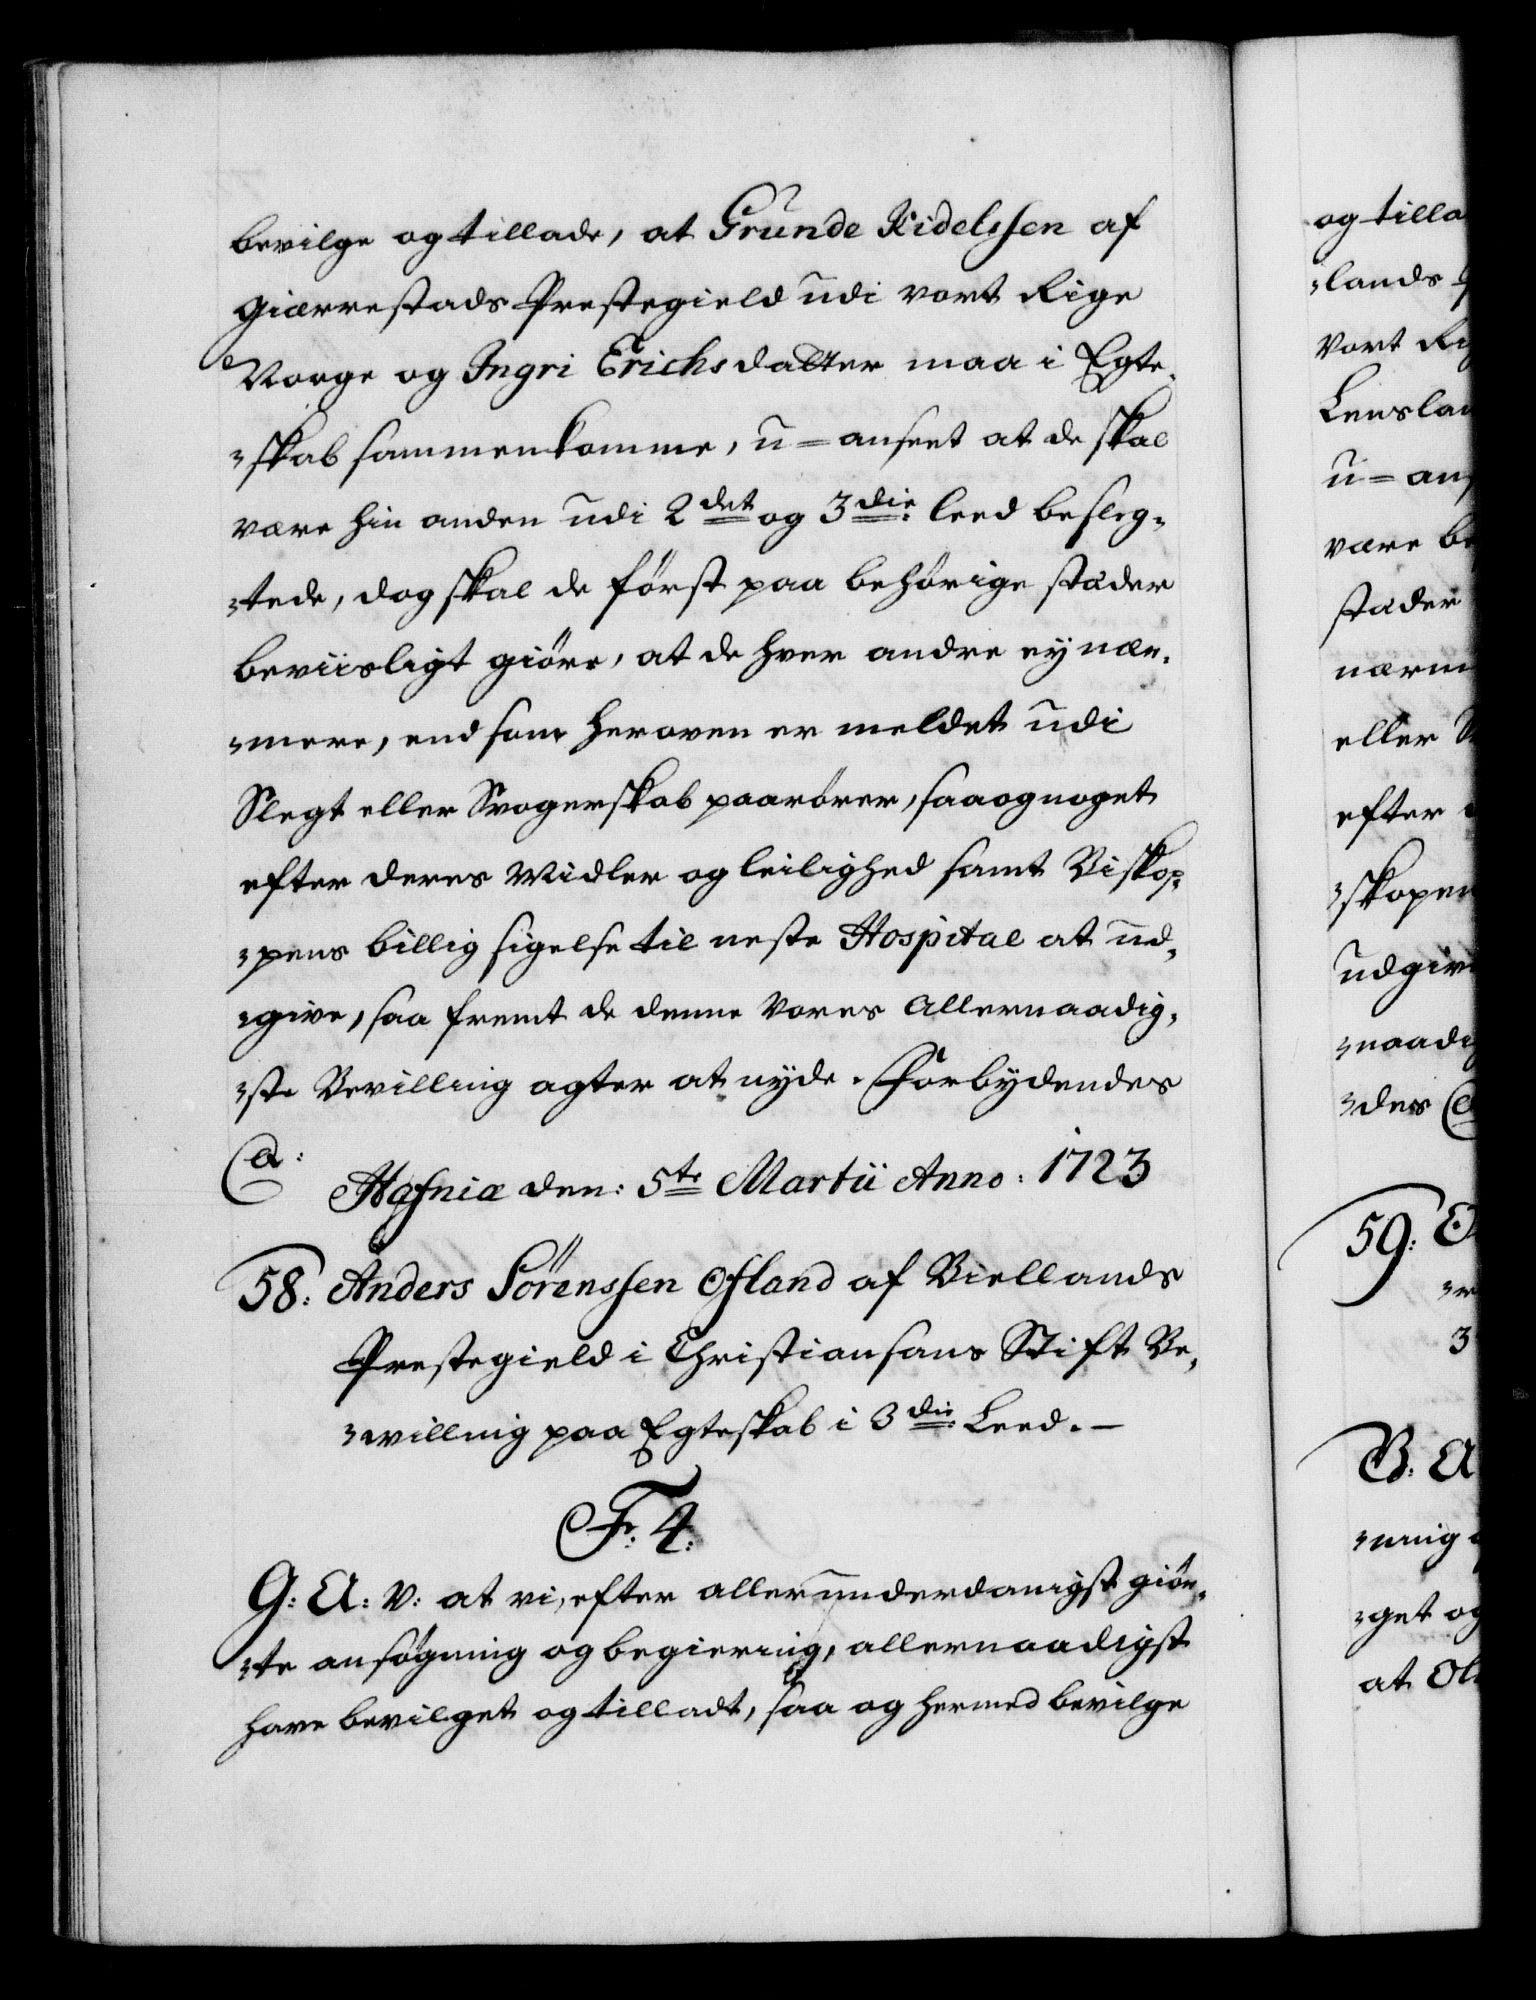 bevilge og tillade, at Grunde Kidelssen af
Giærrestads Prestegield udi vort Rige
Norge og Ingri Erichsdatter maa i Egte,
,skab sammenkomme, u=anseet at de skal
være hin anden udi 2det og 3die leed besleg,
,tede, dog skal de først paa behörige stæder
beviisligt giöre, at de hver andre ey nær,
,mere, end som heroven er meldet udi
Slegt eller Svogerskab paarörer, saa og noget
efter deres Midler og leilighed samt Biskop,
,pens billig sigelse til neste Hospital at ud,
,give, saa fremt de denne Vores Allernaadig,
,ste Bevilling agter at nyde. Forbydendes
Hafniæ den: 5te Martii Anno: 1723
58: Anders Sörenssen Ofland af Biellands
Prestegield i Christiansans Stift Be,
,willing paa Egteskab i 3die Leed. –
Fr. 4:
G: A: V: at vi, efter allerunderdanigst giör,
,te ansøgning og begiering, allernaadigst
have bevilget og tilladt, saa og hermed bevilge
og tilla
,lands
Vort Ri
Lensla
u=ans
være be
stæder
nærm
eller
efter
,skopen
udgiv
,naadi
,des
59:
3
B: A
,ning
,get og
at Ol